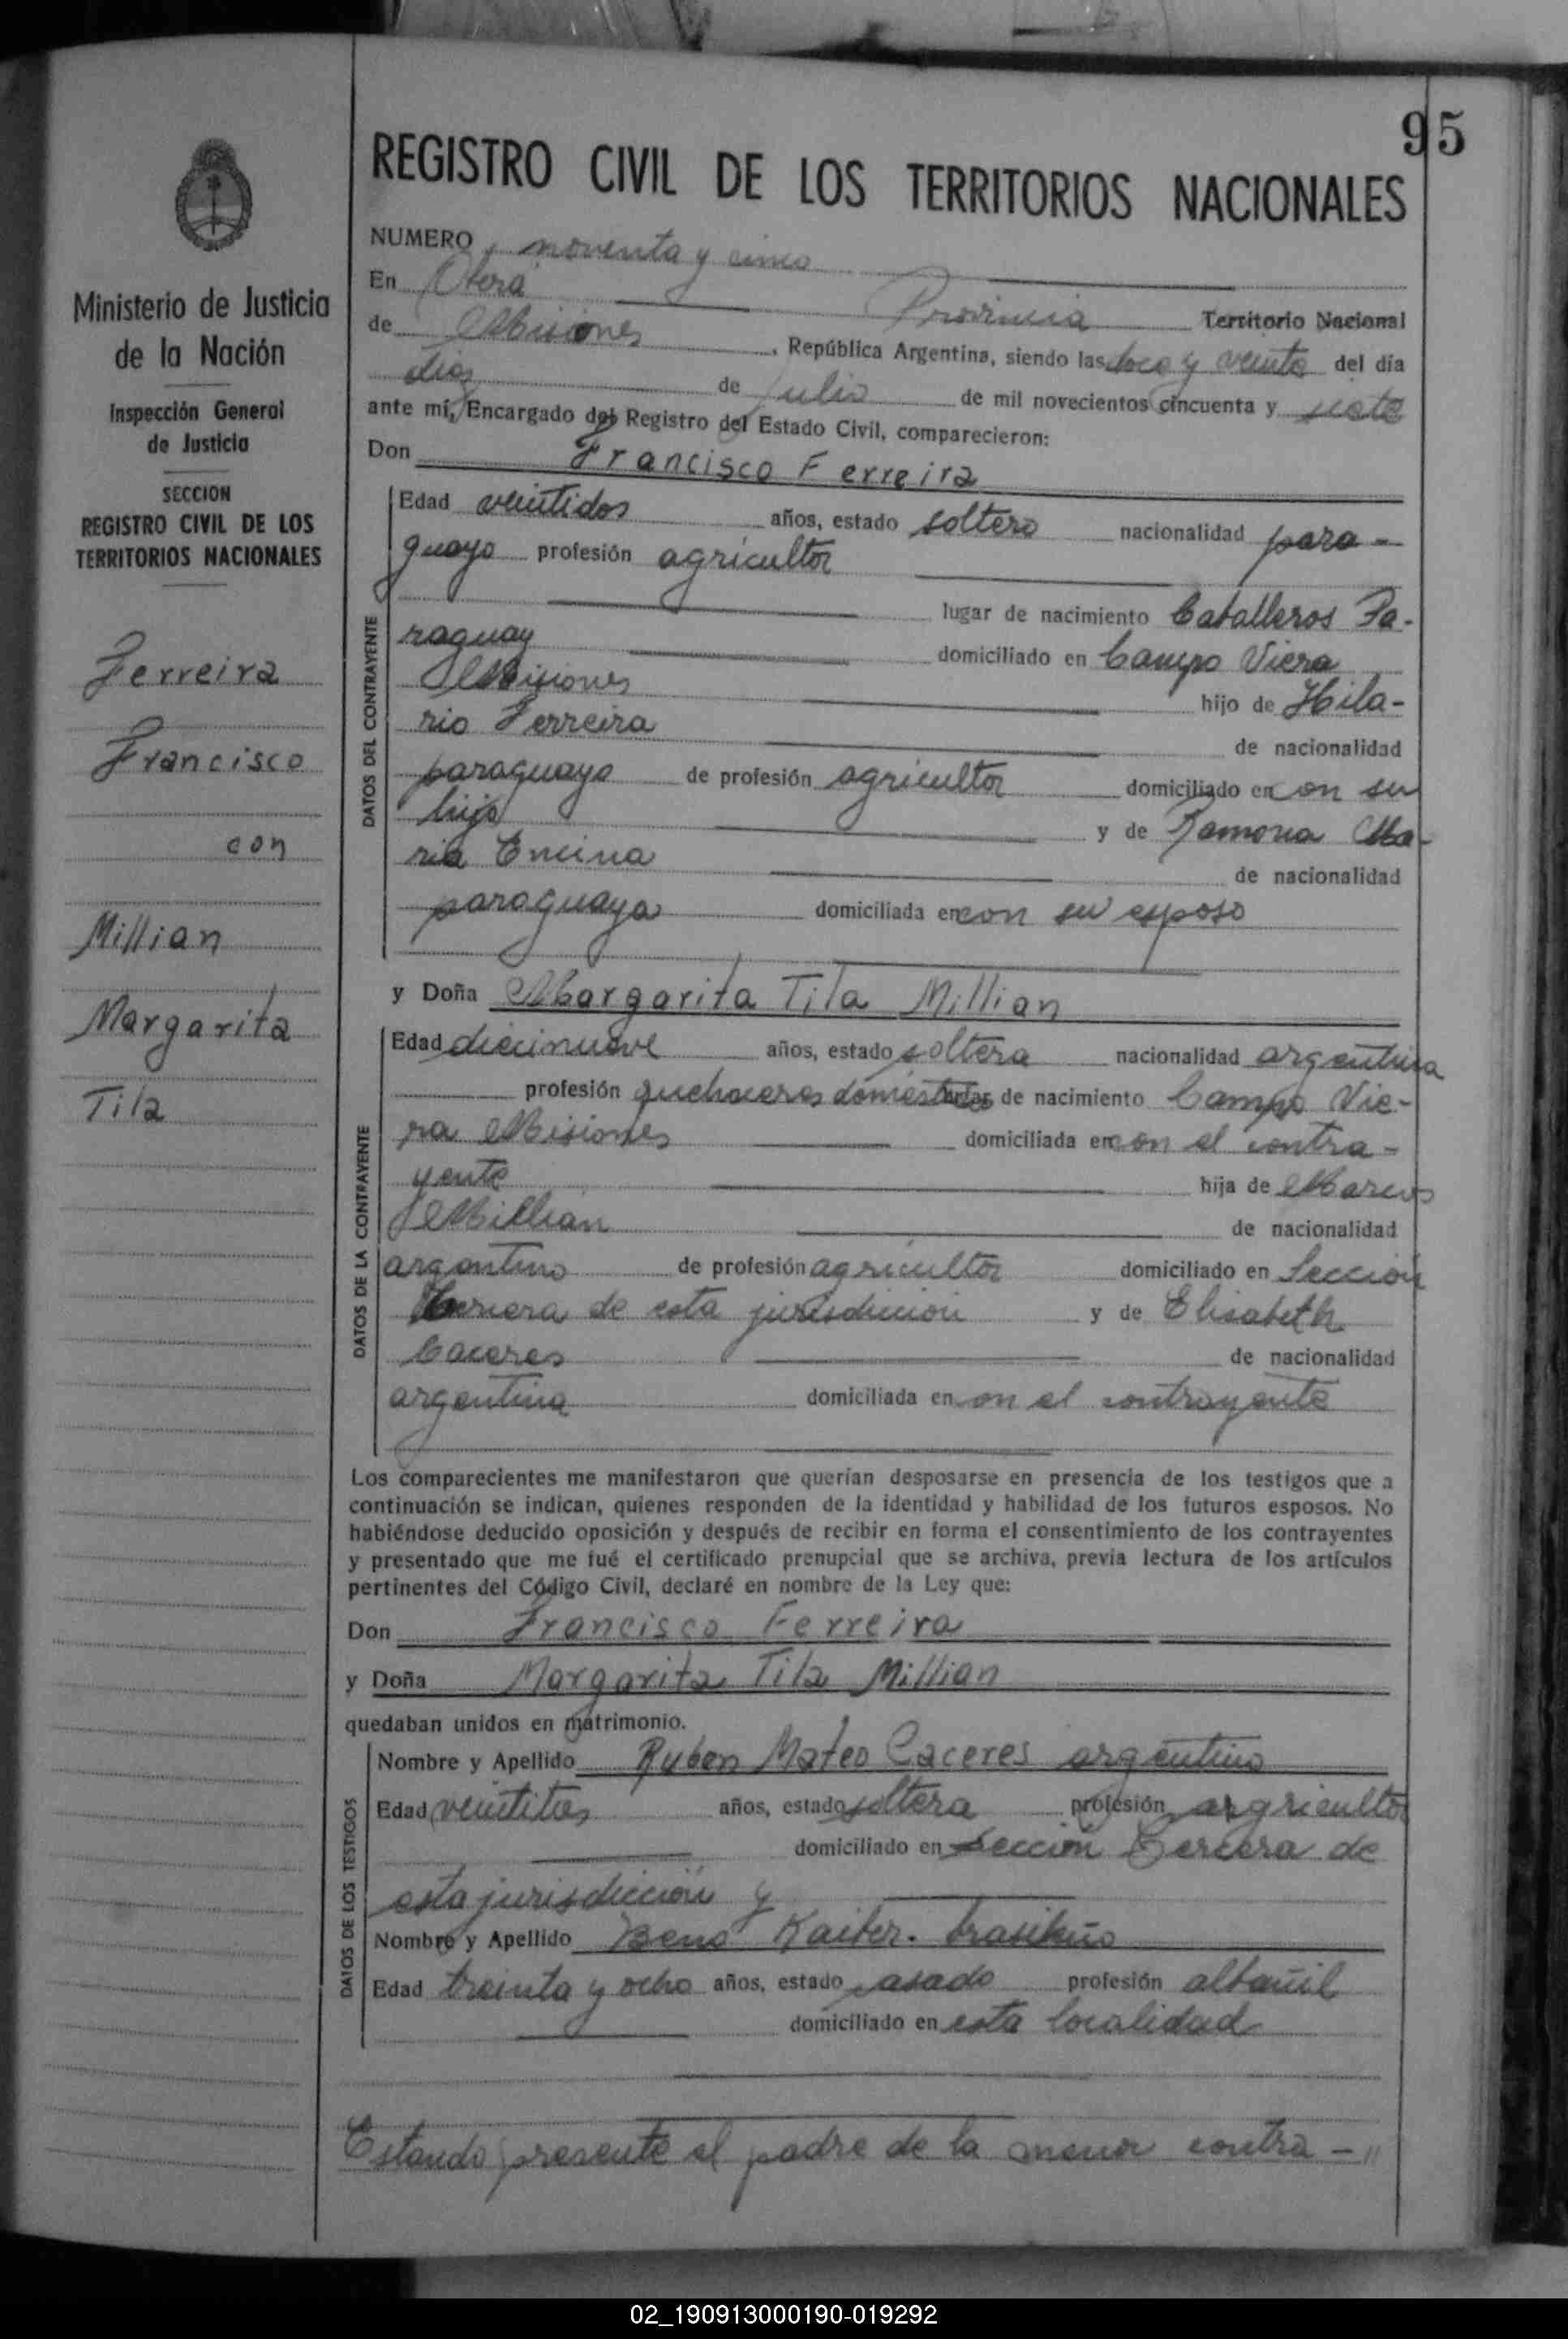 95
REGISTRO CIVIL DE LOS TERRITORIOS NACIONALES
Ministerio de Justicia
de la Nación
Inspección General
de Justicia
SECCION
REGISTRO CIVIL DE LOS
TERRITORIOS NACIONALES
Ferreira
Francisco
con
Millian
Margarita
Tila
NUMERO noventa y cinco
En Oberá
de Misiones Provincia Territorio Nacional
, República Argentina, siendo las doce y veinte del día
diez de Julio de mil novecientos cincuenta y siete
ante mí, Encargado del Registro del Estado Civil, comparecieron:
Don Francisco Ferreira
DATOS DEL CONTRAYENTE
Edad veintidos años, estado soltero nacionalidad para-
guayo profesión agricultor
lugar de nacimiento Caballeros Pa-
raguay domiciliado en Campo Viera
Misiones hijo de Hila-
rio Ferreira de nacionalidad
paraguayo de profesión agricultor domiciliado en con su
hijo y de Ramona Ma-
ria Encina de nacionalidad
paraguaya domiciliada en con su esposo
y Doña Margarita Tila Millian
DATOS DE LA CONTRAYENTE
Edad diecinueve años, estado soltera nacionalidad argentina
profesión quehaceres domésticos lugar de nacimiento Campo Vie-
ra Misiones domiciliada en con el contra-
yente hija de Marcos
Millian de nacionalidad
argentino de profesión agricultor domiciliado en Sección
de esta jurisdicción y de Elisabeth
Caceres de nacionalidad
argentina domiciliada en con el contrayente
Los comparecientes me manifestaron que querían desposarse en presencia de los testigos que a
continuación se indican, quienes responden de la identidad y habilidad de los futuros esposos. No
habiéndose deducido oposición y después de recibir en forma el consentimiento de los contrayentes
y presentado que me fué el certificado prenupcial que se archiva, previa lectura de los artículos
pertinentes del Código Civil, declaré en nombre de la Ley que:
Don Francisco Ferreira
y Doña Margarita Tila Millian
quedaban unidos en matrimonio.
DATOS DE LOS TESTIGOS
Nombre y Apellido Ruben Mateo Caceres argentino
Edad años, estado soltera profesión argricultor
domiciliado en Sección Tercera de
esta jurisdicción y
Nombre y Apellido Beno Kaiber. brasileño
Edad treinta y ocho años, estado casado profesión albañil
domiciliado en esta localidad
Estando presente el padre de la menor contra-"
02_190913000190-019292